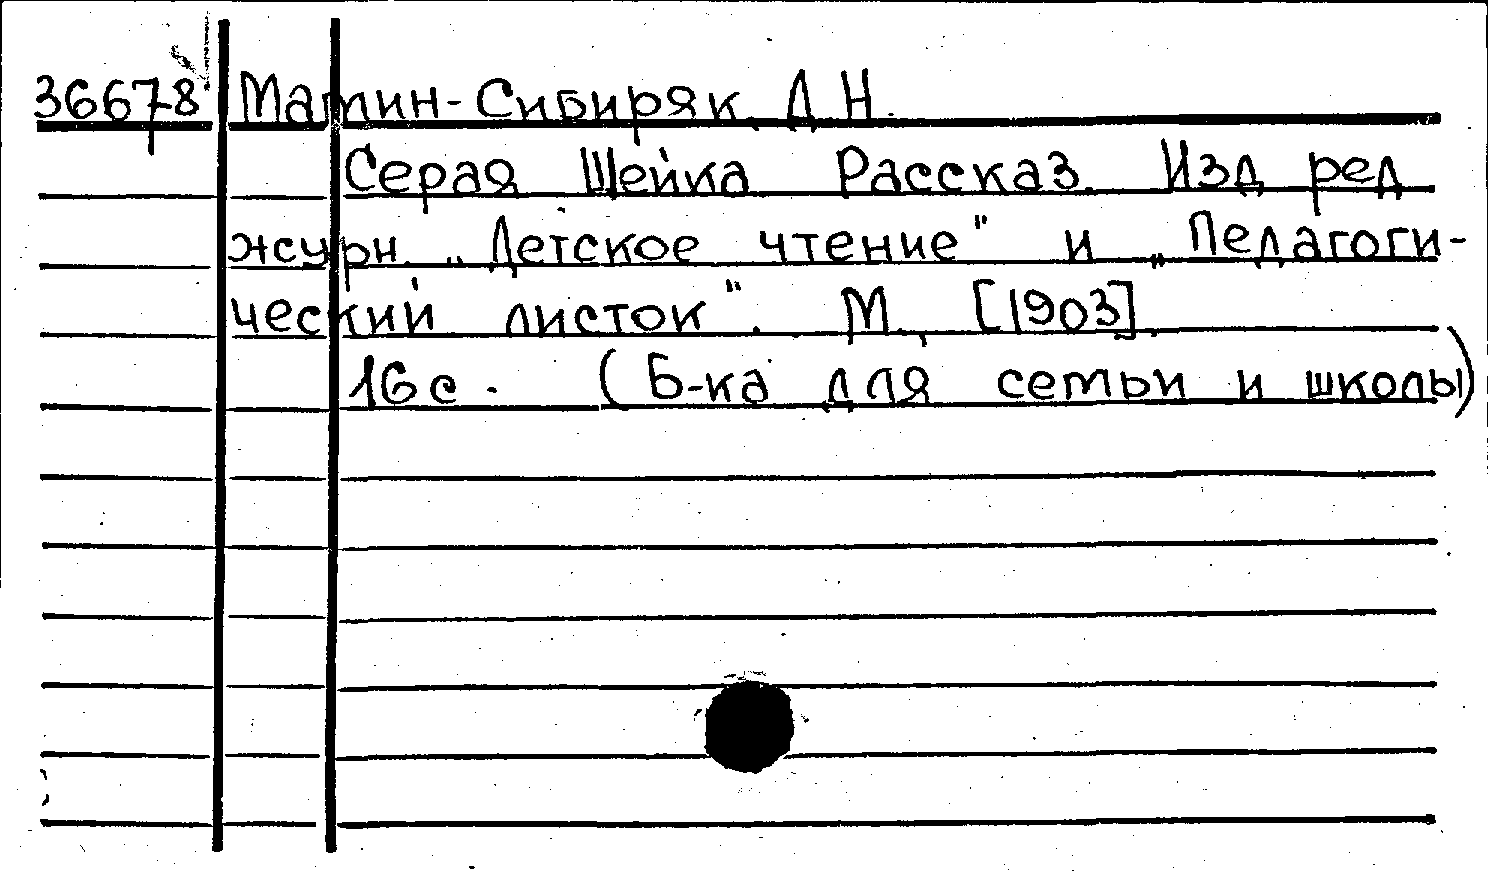 36678 Мамин-Сибиряк, Д.Н.
Серая Шейка. Рассказ. Изд. ред.
журн. „Детское чтение" и „Педагоги-
ческий листок". М., [1903].
16 с. (Б-ка для семьи и школы)